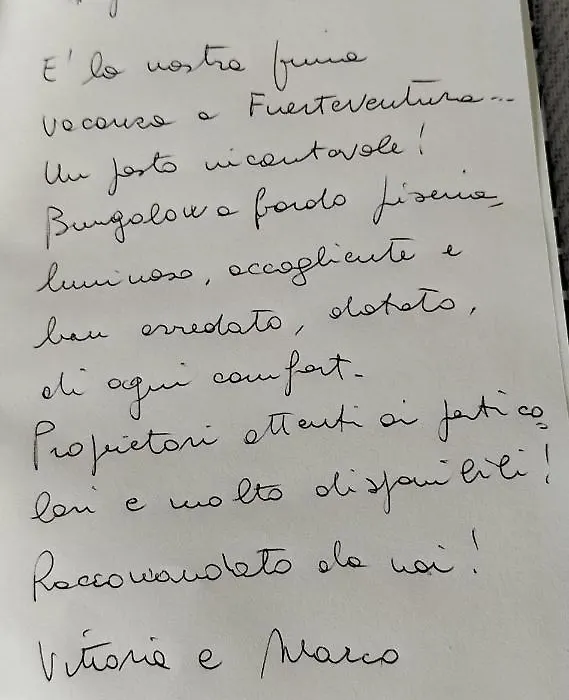 E' la nostra prima
vacanza a Fuerteventura...
Un posto incantevole!
Bungalow a bordo piscina,
luminoso, accogliente e
ben arredato, dotato,
di ogni comfort.
Proprietari attenti ai partico
lari e molto disponibili!
Raccomandato da noi!
Vittoria e Marco